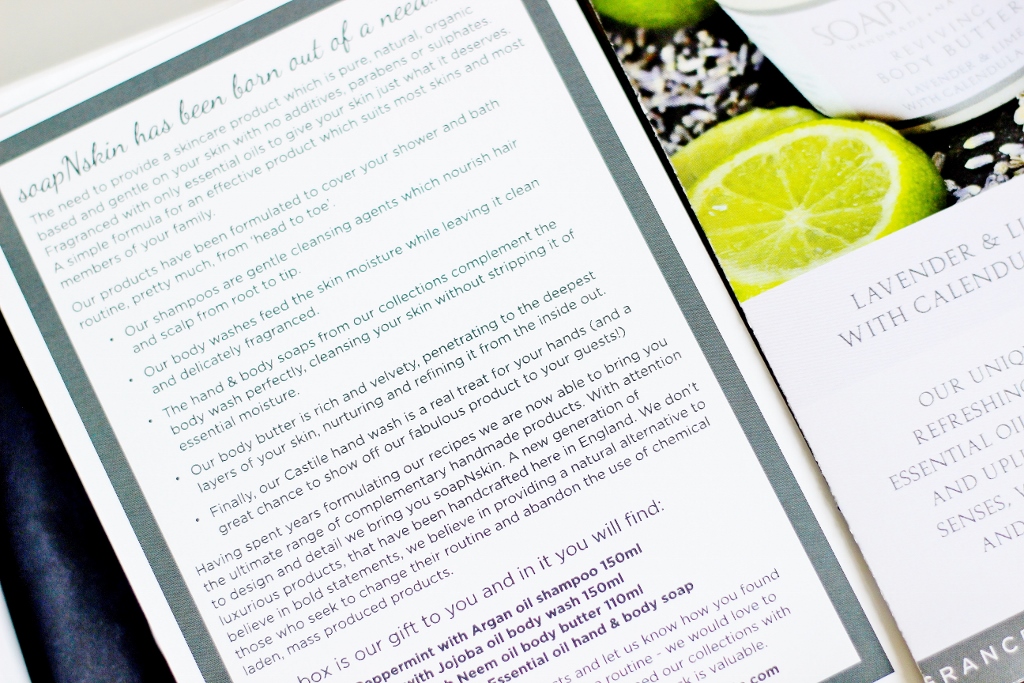 soapNskin has been born out of a need...
The need to provide a skincare product which is pure, natural, organic
based and gentle on your skin with no additives, parabens or sulphates.
Fragranced with only essential oils to give your skin just what it deserves.
A simple formula for an effective product which suits most skins and most
members of your family.
Our products have been formulated to cover your shower and bath
routine, pretty much, from 'head to toe'.
• Our shampoos are gentle cleansing agents which nourish hair
and scalp from root to tip.
• Our body washes feed the skin moisture while leaving it clean
and delicately fragranced.
• The hand & body soaps from our collections complement the
body wash perfectly, cleansing your skin without stripping it of
essential moisture.
• Our body butter is rich and velvety, penetrating to the deepest
layers of your skin, nurturing and refining it from the inside out.
• Finally, our Castile hand wash is a real treat for your hands (and a
great chance to show off our fabulous product to your guests!)
Having spent years formulating our recipes we are now able to bring you
the ultimate range of complementary handmade products. With attention
to design and detail we bring you soapNskin. A new generation of
luxurious products, that have been handcrafted here in England. We don't
believe in bold statements, we believe in providing a natural alternative to
those who seek to change their routine and abandon the use of chemical
laden, mass produced products.
box is our gift to you and in it you will find:
Peppermint with Argan oil shampoo 150ml
with Jojoba oil body wash 150ml
Neem oil body butter 110ml
Essential oil hand & body soap
and let us know you found
routine - we would love to
our collections with
is valuable.
.com
SOAP
REVIVING
BODY BUTTER
LAVENDER & LIME
WITH CALENDULA
LAVENDER & LI
WITH CALENDU
OUR UNIQU
REFRESHING
ESSENTIAL OIL
AND UPLI
SENSES,
AND
GRANC